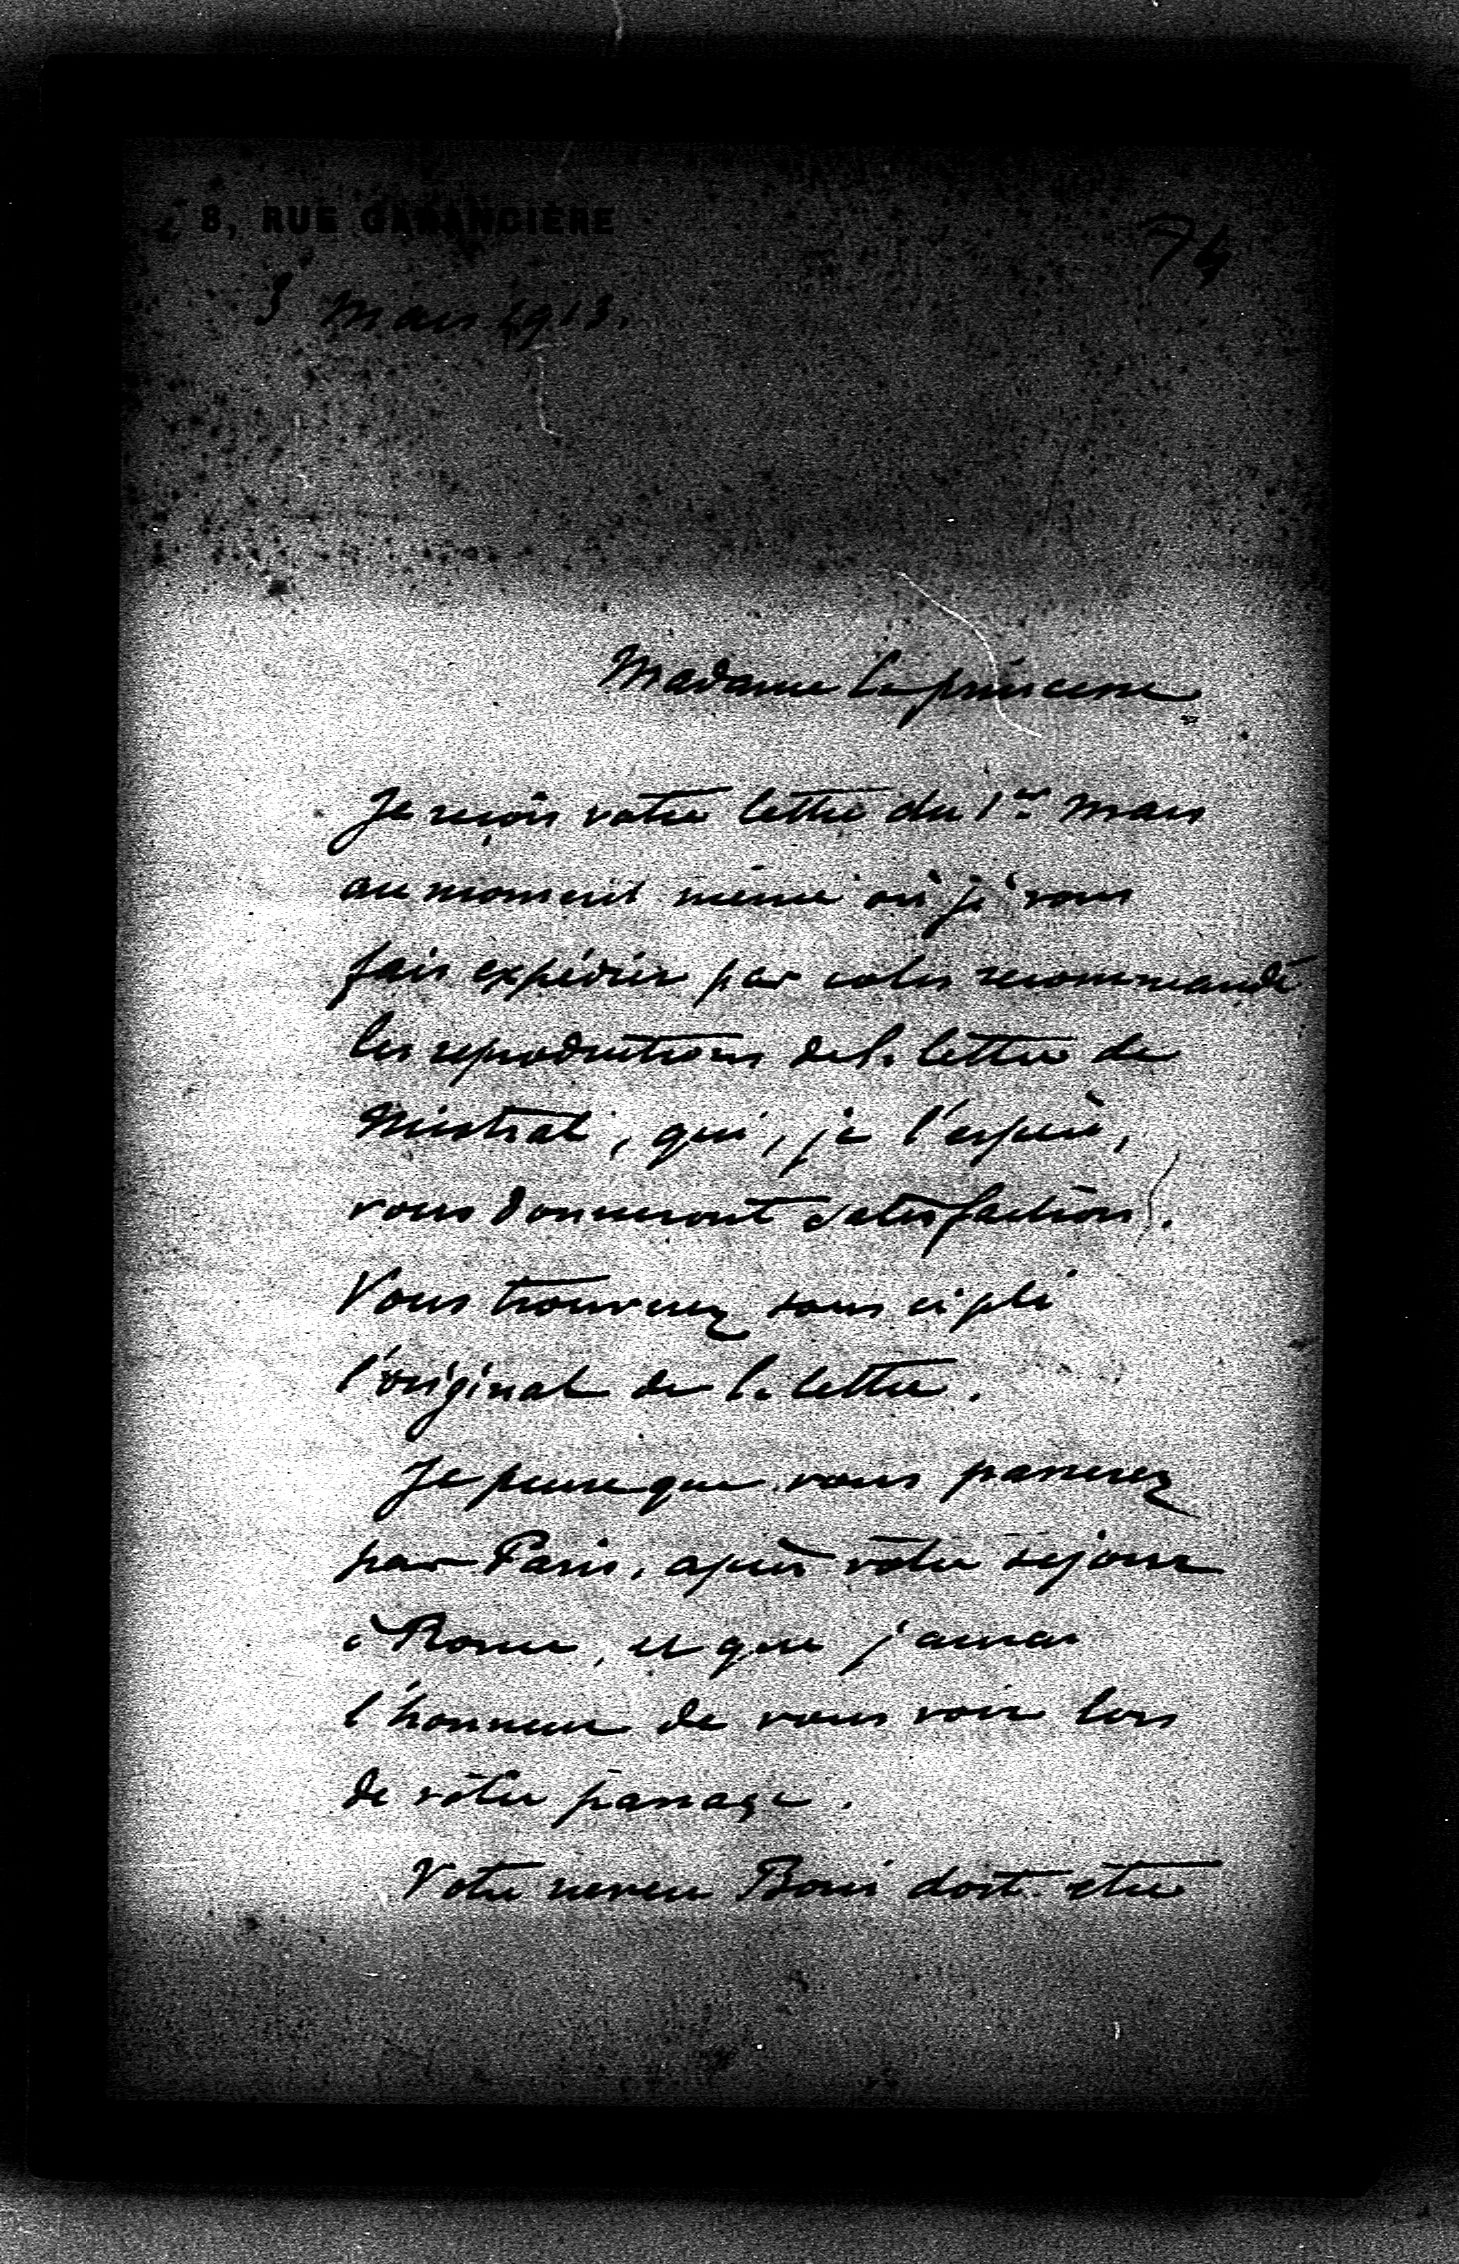 8, RUE GARANCIÈRE
74
3 Mars 1913.
Madame la princesse
Je reçois votre lettre du 1er Mars
au moment même où je vous
fais expédier par colis recommandé
les reproductions de la lettre de
Mistral, qui, je l'espère,
vous donneront satisfaction.
Vous trouverez sous ce pli
l'original de la lettre.
Je pense que vous passerez
par Paris, après votre séjour
à Rome, et que j'aurai
l'honneur de vous voir lors
de votre passage.
Votre neveu Boris doit être